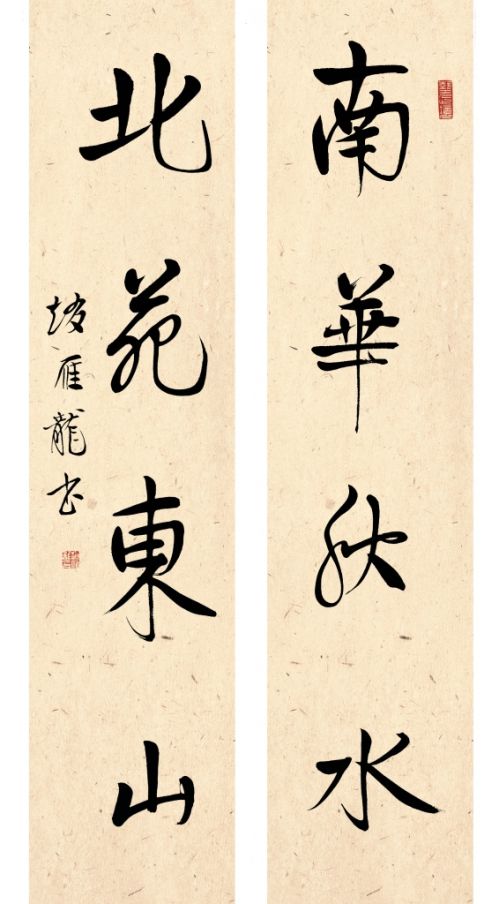 南華秋水
北苑東山
趙雁龍书